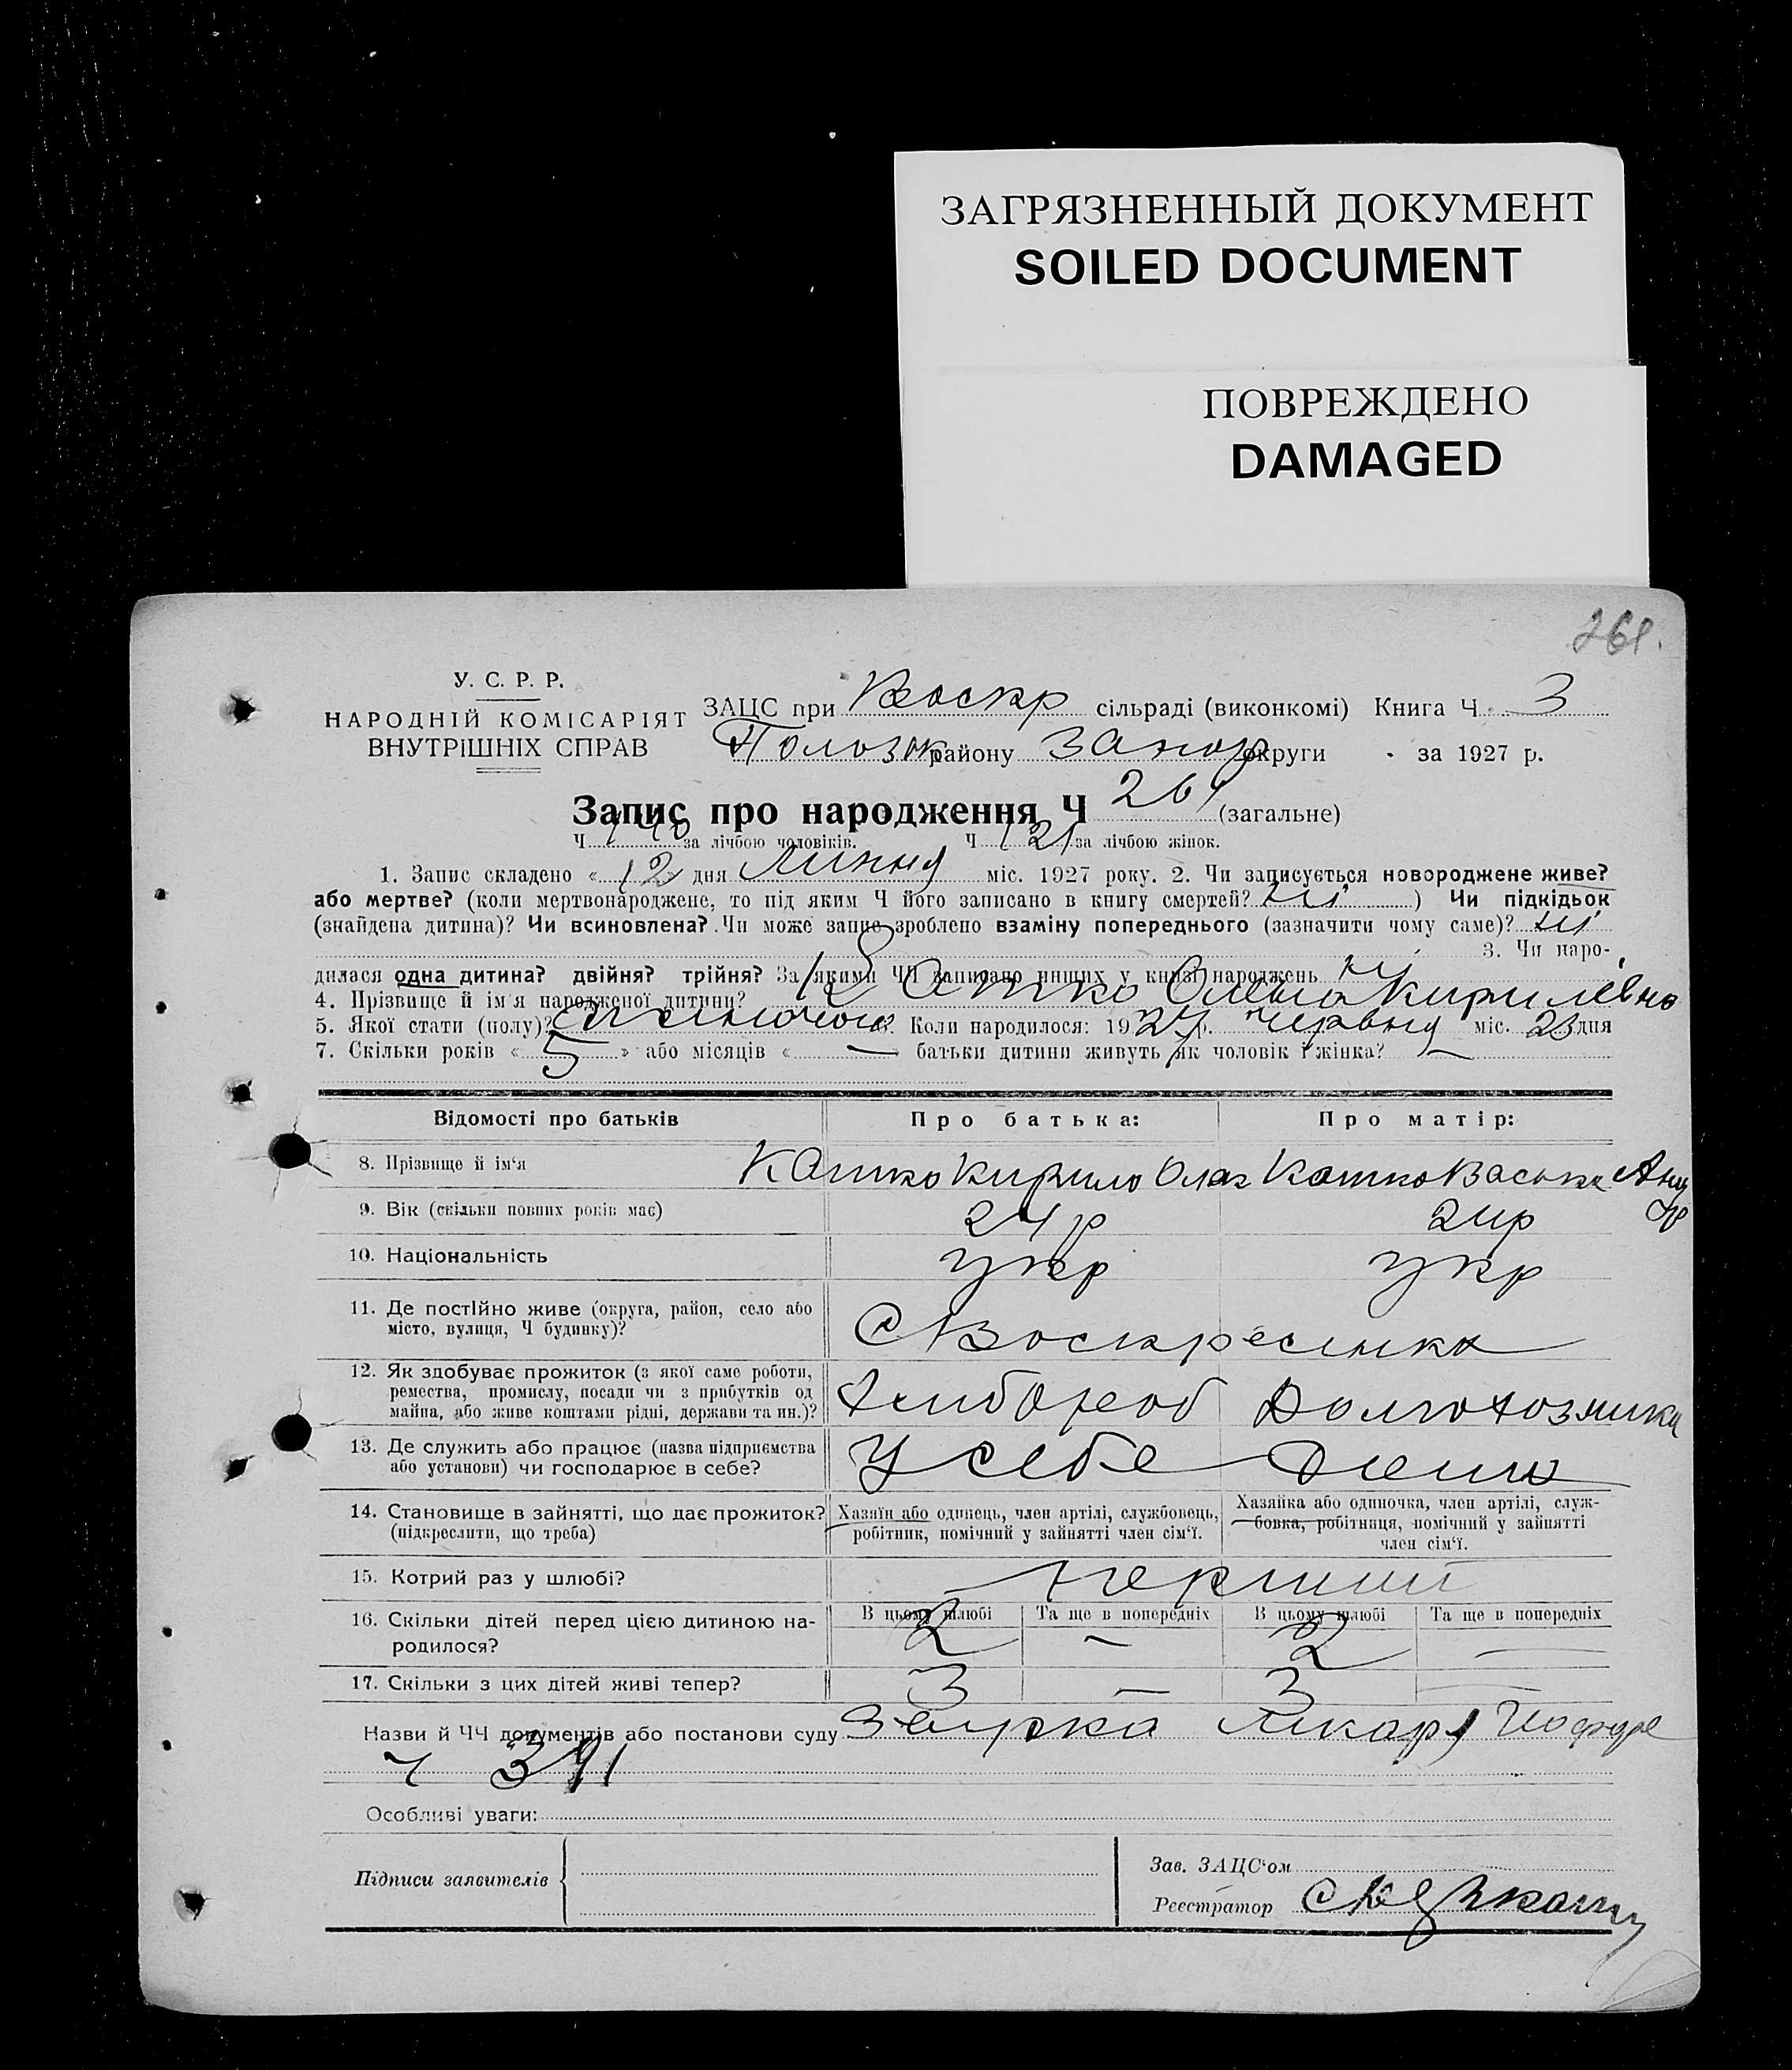 ЗАГРЯЗНЕННЫЙ ДОКУМЕНТ
SOILED DOCUMENT
ПОВРЕЖДЕНО
DAMAGED
261.
У. С. Р. Р.
НАРОДНІЙ КОМІСАРІЯТ
ВНУТРІШНІХ СПРАВ
ЗАЦС при Воскр сільраді (виконкомі) Книга Ч 3
Пологів району Запор округи за 1927 р.
Запис про народження Ч 261 (загальне)
Ч 140 за лічбою чоловіків. Ч 121 за лічбою жінок.
1. Запис складено «12» дня Липня міс. 1927 року. 2. Чи записується новороджене живе?
або мертве? (коли мертвонароджене, то під яким Ч його записано в книгу смертей? ні) Чи підкідьок
(знайдена дитина)? Чи всиновлена? Чи може запис зроблено взаміну попереднього (зазначити чому саме)? ні
3. Чи наро-
дилася одна дитина? двійня? трійня? За якими ЧЧ записано инших у книзі народжень ні
4. Прізвище й ім'я народженої дитини? Катко Ольга Кирилівна
5. Якої стати (полу)? жіночою 6. Коли народилося: 1927 р. червня міс. 23 дня
7. Скільки років «5» або місяців «—» батьки дитини живуть як чоловік і жінка? —
Відомості про батьків Про батька: Про матір:
8. Прізвище й ім'я Катко Кирило Катко
9. Вік (скільки повних років має) 24 р 24 р
10. Національність укр укр
11. Де постійно живе (округа, район, село або
місто, вулиця, Ч будинку)? С Воскресенка
12. Як здобуває прожиток (з якої саме роботи,
ремества, промислу, посади чи з прибутків од
майна, або живе коштами рідні, держави та ин.)? хлібороб
13. Де служить або працює (назва підприємства
або установи) чи господарює в себе? У себе дома
14. Становище в зайнятті, що дає прожиток?
(підкреслити, що треба)
Хазяїн або одинець, член артілі, службовець,
робітник, помічний у зайнятті член сім'ї.
Хазяйка або одиночка, член артілі, служ-
бовка, робітниця, помічний у зайнятті
член сім'ї.
15. Котрий раз у шлюбі? перший
16. Скільки дітей перед цією дитиною на-
родилося?
В цьому шлюбі Та ще в попередніх В цьому шлюбі Та ще в попередніх
2 — 2 —
17. Скільки з цих дітей живі тепер? 3 — 3 —
Назви й ЧЧ документів або постанови суду лікаря
Ч 391
Особливі уваги:
Підписи заявителів
Зав. ЗАЦС'ом
Реєстратор